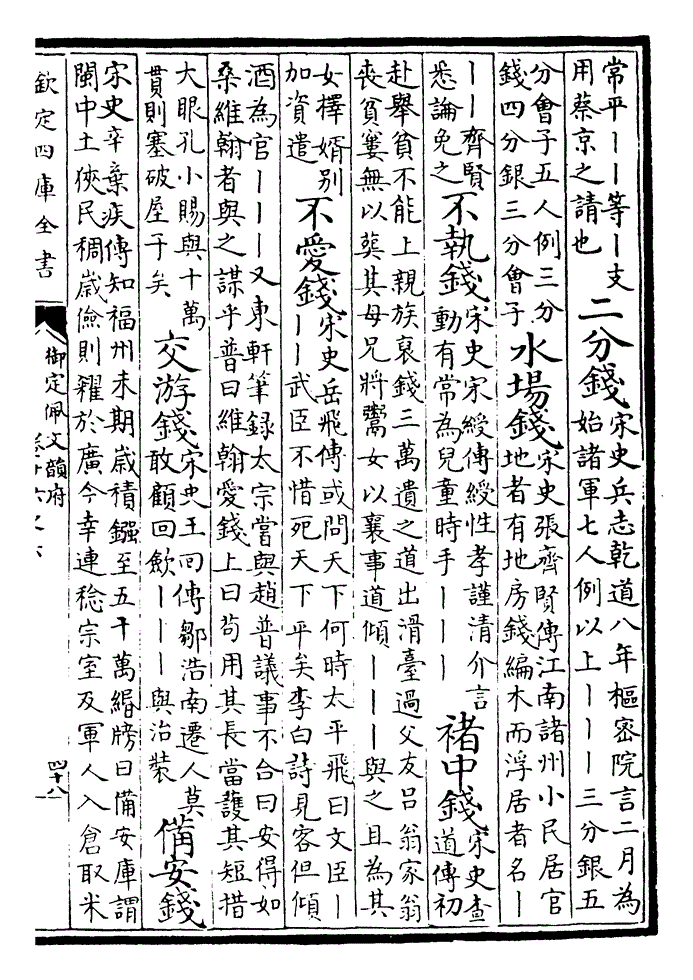 常平｜｜等｜支
用蔡京之請也
二分錢
宋史兵志乾道八年樞密院言二月為
始諸軍七人例以上｜｜｜三分銀五
分會子五人例三分
錢四分銀三分會子
水場錢
宋史張齊賢傳江南諸州小民居官
地者有地房錢編木而浮居者名｜
｜｜齊賢
悉論免之
不執錢
宋史宋綬傳綬性孝謹清介言
動有常為兒童時手｜｜｜
褚中錢
宋史查
道傳初
赴舉貧不能上親族裒錢三萬遺之道出滑臺過父友呂翁家翁
喪貧窶無以葬其母兄將鬻女以襄事道傾｜｜｜與之且為其
女擇婿別
加資遣
不愛錢
宋史岳飛傳或問天下何時太平飛曰文臣｜
｜｜武臣不惜死天下平矣李白詩見客但傾
酒為官｜｜｜又東軒筆録太宗嘗與趙普議事不合曰安得如
桑維翰者與之謀乎普曰維翰愛錢上曰茍用其長當護其短措
大眼孔小賜與十萬
貫則塞破屋子矣
交游錢
宋史王回傳鄒浩南遷人莫
敢顧回歛｜｜｜與治裝
備安錢
宋史辛棄疾傳知福州未期嵗積鏹至五十萬緡牓曰備安庫謂
閩中土狹民稠嵗儉則糴於廣今幸連稔宗室及軍人入倉取米
欽定四庫全書
御定佩文韻府
卷十六之六
四十八